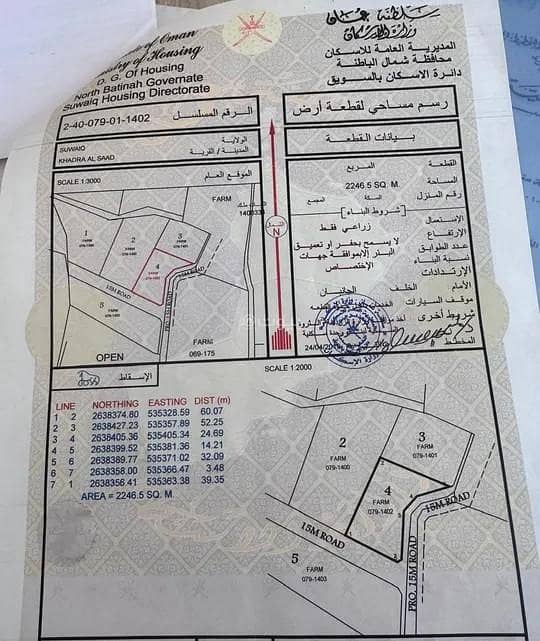 سلطنة عمان
وزارة الإسكان
of Oman
of Housing
D. G. Of Housing
North Batinah Governate
Suwaiq Housing Directorate
المديرية العامة للاسكان
محافظة شمال الباطنة
دائرة الاسكان بالسويق
2-40-079-01-1402
الرقم المسلسل
رسم مساحي لقطعة أرض
SUWAIQ
الولاية
KHADRA AL SAAD
المدينة / القرية
SCALE 1:3000
الموقع العام
FARM
1
FARM
2
FARM
3
FARM
4
FARM
5
FARM
15M ROAD
15M ROAD
OPEN
FARM
069-175
الشمال
N
بيانات القطعة
القطعة
المربع
المساحة
2246.5 SQ. M
رقم المنزل
السكة
المجمع
[شروط البناء]
الاستعمال
زراعي فقط
الإرتفاع
عدد الطوابق
نسبة البناء
الإرتدادات
لا يسمح بحفر او تعميق
البئر إلا بموافقة جهات
الإختصاص
الأمام
الخلف
الجانبان
موقف السيارات
شروط أخرى
المخطط
SCALE 1:2000
الإسقاط
LINE NORTHING EASTING DIST (m)
1 2 2638374.80 535328.59 60.07
2 3 2638427.23 535357.89 52.25
3 4 2638405.36 535405.34 24.69
4 5 2638399.52 535381.36 14.21
5 6 2638389.77 535371.02 32.09
6 7 2638358.00 535366.47 3.48
7 1 2638356.41 535363.38 39.35
AREA = 2246.5 SQ. M
2
FARM
079-1400
3
FARM
079-1401
4
FARM
079-1402
15M ROAD
15M ROAD
PRO. 15M ROAD
5
FARM
079-1403